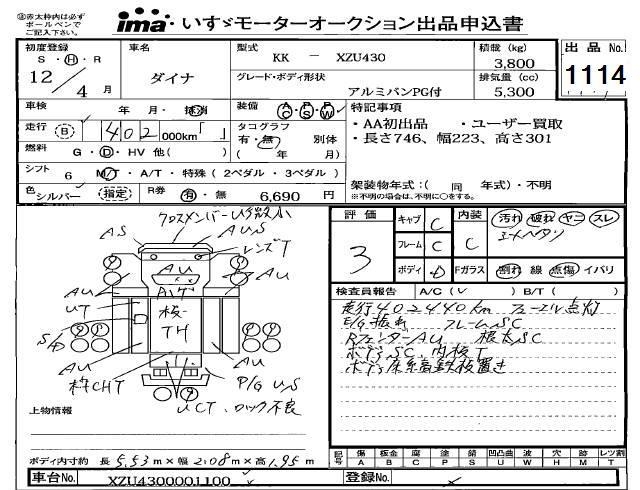 ㊟赤太枠内は必ず
ボールペンで
ご記入下さい。
ima いすゞモーターオークション出品申込書
初度登録
S・H・R
12/4月
車名
ダイナ
型式
KK － XZU430
積載 (kg)
3,800
出品No.
1114
グレード・ボディ形状
アルミバンPG付
排気量 (cc)
5,300
車検
年 月・抹消
装備
AC PS PW
特記事項
・AA初出品 ・ユーザー買取
・長さ746、幅223、高さ301
走行 (B) 402000km「 」
タコグラフ
有・無 別体
( 年 月)
燃料
G・D・HV 他( )
シフト
6 M/T・A/T・特殊 ( 2ペダル・3ペダル )
色
シルバー (指定)
R券
有・無 6,690 円
架装物年式：( 同 年式)・不明
※不明の場合は、不明に○をする。
クロスメンバーUS数小
AS
AUS
レンズT
AU
AU
AU
UT
AU
AU
AU
枠CHT
P/G US
UCT、ロック不良
上物情報
ボディ内寸約 長 5.53m×幅 2.08m×高 1.95m
評価
3
キャブ C
フレーム C
ボディ D
内装 C
Fガラス
汚れ 破れ ヤニ スレ
割れ 線 点傷 イバリ
検査員報告 A/C (✓ ) B/T ( )
走行402440km
フレームSC
RフェンターAU 根太SC
ボディSC、内板T
ボディ床余高鉄板置き
記号
傷 A
板金 B
腐 C
塗 P
錆 S
凹凸曲 U
波 W
穴 H
汚 M
レツ割 T
車台No. XZU4300001100
登録No.